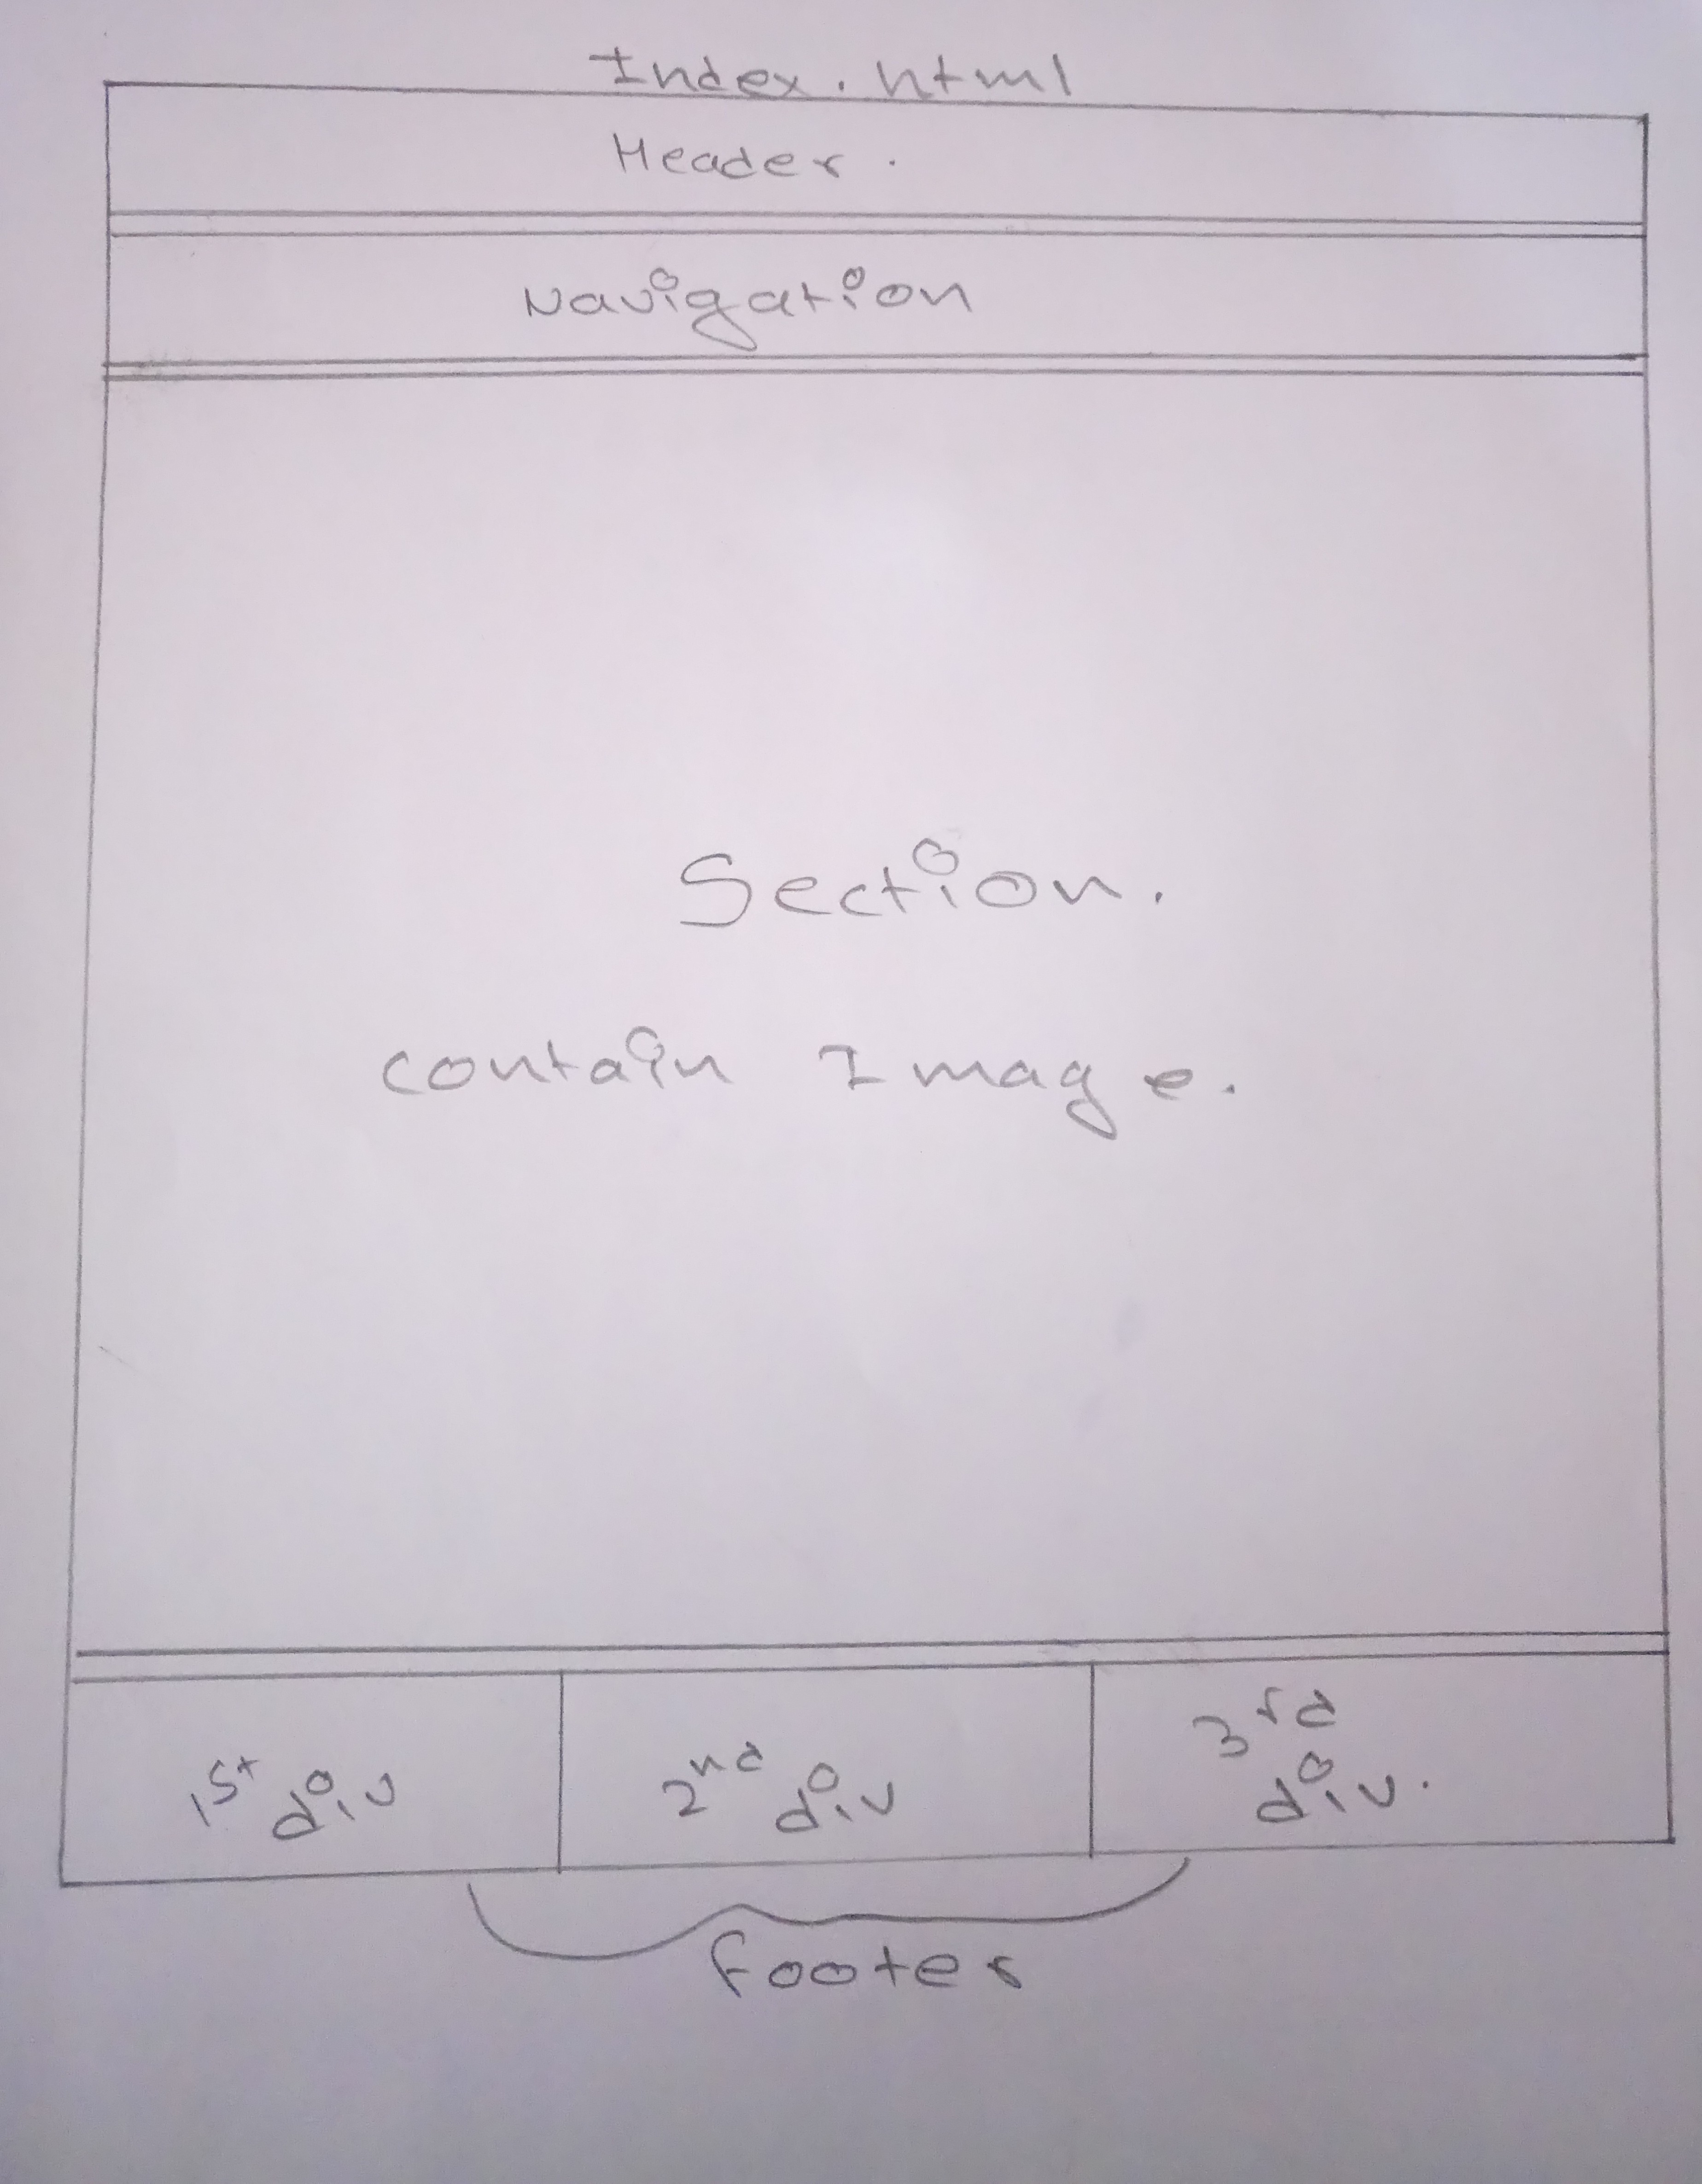 Index.html
Header.
Navigation
Section.
contain Image.
1st div
2nd div
3rd div.
footer